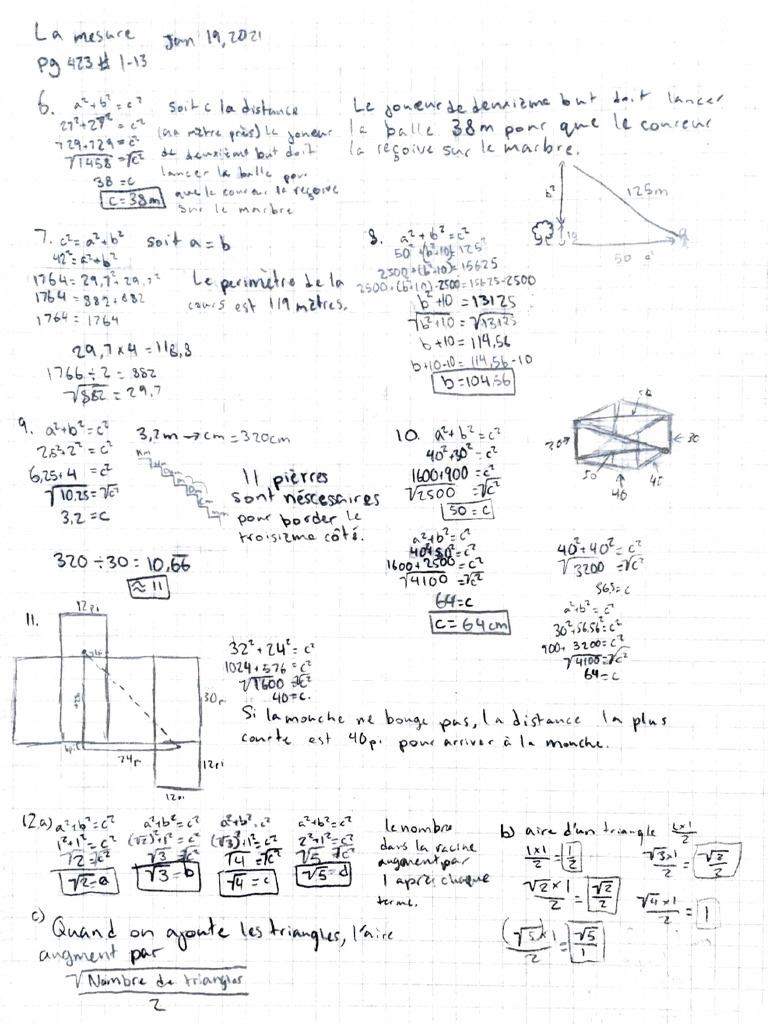 La mesure Jan 19, 2021
pg 423 # 1-13
6. a² + b² = c²
27² + 27² = c²
729 + 729 = c²
√1458 = √c²
38 = c
c = 38m
soit c la distance
(au mètre près) le joueur
de deuxième but doit
lancer la balle pour
que le coureur la reçoive
sur le marbre
Le joueur de deuxième but doit lancer
la balle 38m pour que le coureur
la reçoive sur le marbre.
7. c² = a² + b² soit a = b
42² = a² + b²
1764 = 29,7² + 29,7²
1764 = 882 + 882
1764 = 1764
29,7 x 4 = 118,8
1766 ÷ 2 = 882
√882 = 29,7
Le perimètre de la
cours est 119 mètres.
8. a² + b² = c²
50² + (b²+10) = 125²
2500 + (b²+10) = 15625
2500 + (b+10) - 2500 = 15625 - 2500
b² + 10 = 13125
√b² + 10 = √13125
b + 10 = 114,56
b + 10 - 10 = 114,56 - 10
b = 104,56
b²
125m
10
50 a²
9. a² + b² = c²
2,5² + 2² = c²
6,25 + 4 = c²
√10,25 = √c²
3,2 = c
320 ÷ 30 = 10,66
≈ 11
3,2m → cm = 320cm
km
11 pièrres
sont néscessaires
pour border le
troisizme côté.
10. a² + b² = c²
40² + 30² = c²
1600 + 900 = c²
√2500 = √c²
50 = c
a² + b² = c²
40² + 50² = c²
1600 + 2500 = c²
√4100 = √c²
64 = c
c = 64 cm
30
50
40
40² + 40² = c²
√3200 = √c²
56,5 = c
a² + b² = c²
30² + 56,56² = c²
900 + 3200 = c²
√4100 = √c²
64 = c
11.
12pi
30pi
24pi
12pi
12pi
32² + 24² = c²
1024 + 576 = c²
√1600 = √c²
40 = c.
Si la mouche ne bouge pas, la distance la plus
courte est 40pi pour arriver à la mouche.
12 a) a² + b² = c²
1² + 1² = c²
√2 = c²
√2 = a
a² + b² = c²
(√2)² + 1² = c²
√3 = c²
√3 = b
a² + b² = c²
(√3)² + 1² = c²
√4 = √c²
√4 = c
a² + b² = c²
2² + 1² = c²
√5 = √c²
√5 = d
le nombre
dans la racine
augment par
1 après chaque
terme.
b) aire d'un triangle
1x1/2 = 1/2
√2 x 1/2 = √2/2
(√5) x 1/2 = √5/1
√3 x 1/2 = √3/2
√4 x 1/2 = 1
c) Quand on ajoute les triangles, l'aire
augment par
√Nombre de triangles
2